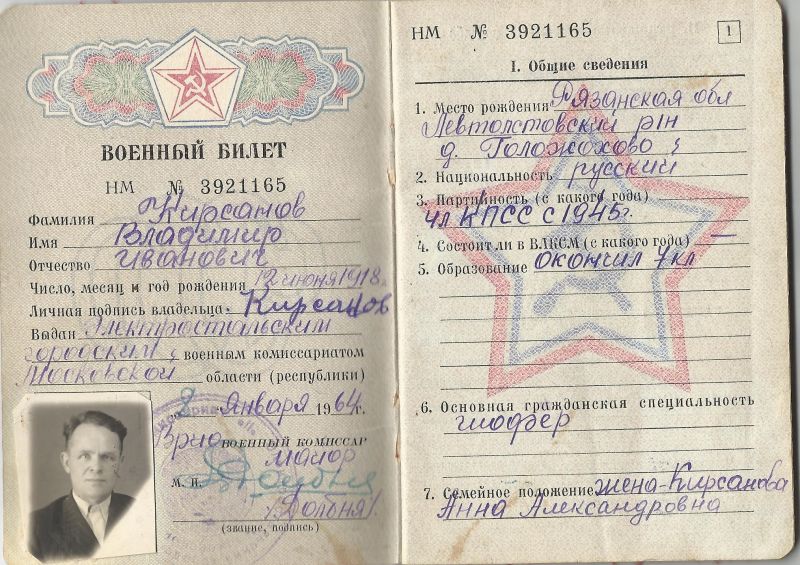 ВОЕННЫЙ БИЛЕТ
НМ № 3921165
Фамилия Кирсанов
Имя Владимир
Отчество Иванович
Число, месяц и год рождения 12 июня 1918г.
Личная подпись владельца. Кирсанов
Выдан Электростальским
городским военным комиссариатом
Московской области (республики)
2 января 1964г.
Врио военный комиссар
майор
М. П.
(звание, подпись)
НМ № 3921165
1
I. Общие сведения
1. Место рождения Рязанская обл
Левтолстовский р-н
д. Головохово
2. Национальность русский
3. Партийность (с какого года)
чл КПСС с 1945г.
4. Состоит ли в ВЛКСМ (с какого года) —
5. Образование окончил 7 кл
6. Основная гражданская специальность
шофер
7. Семейное положение жена-Кирсанова
Анна Александровна